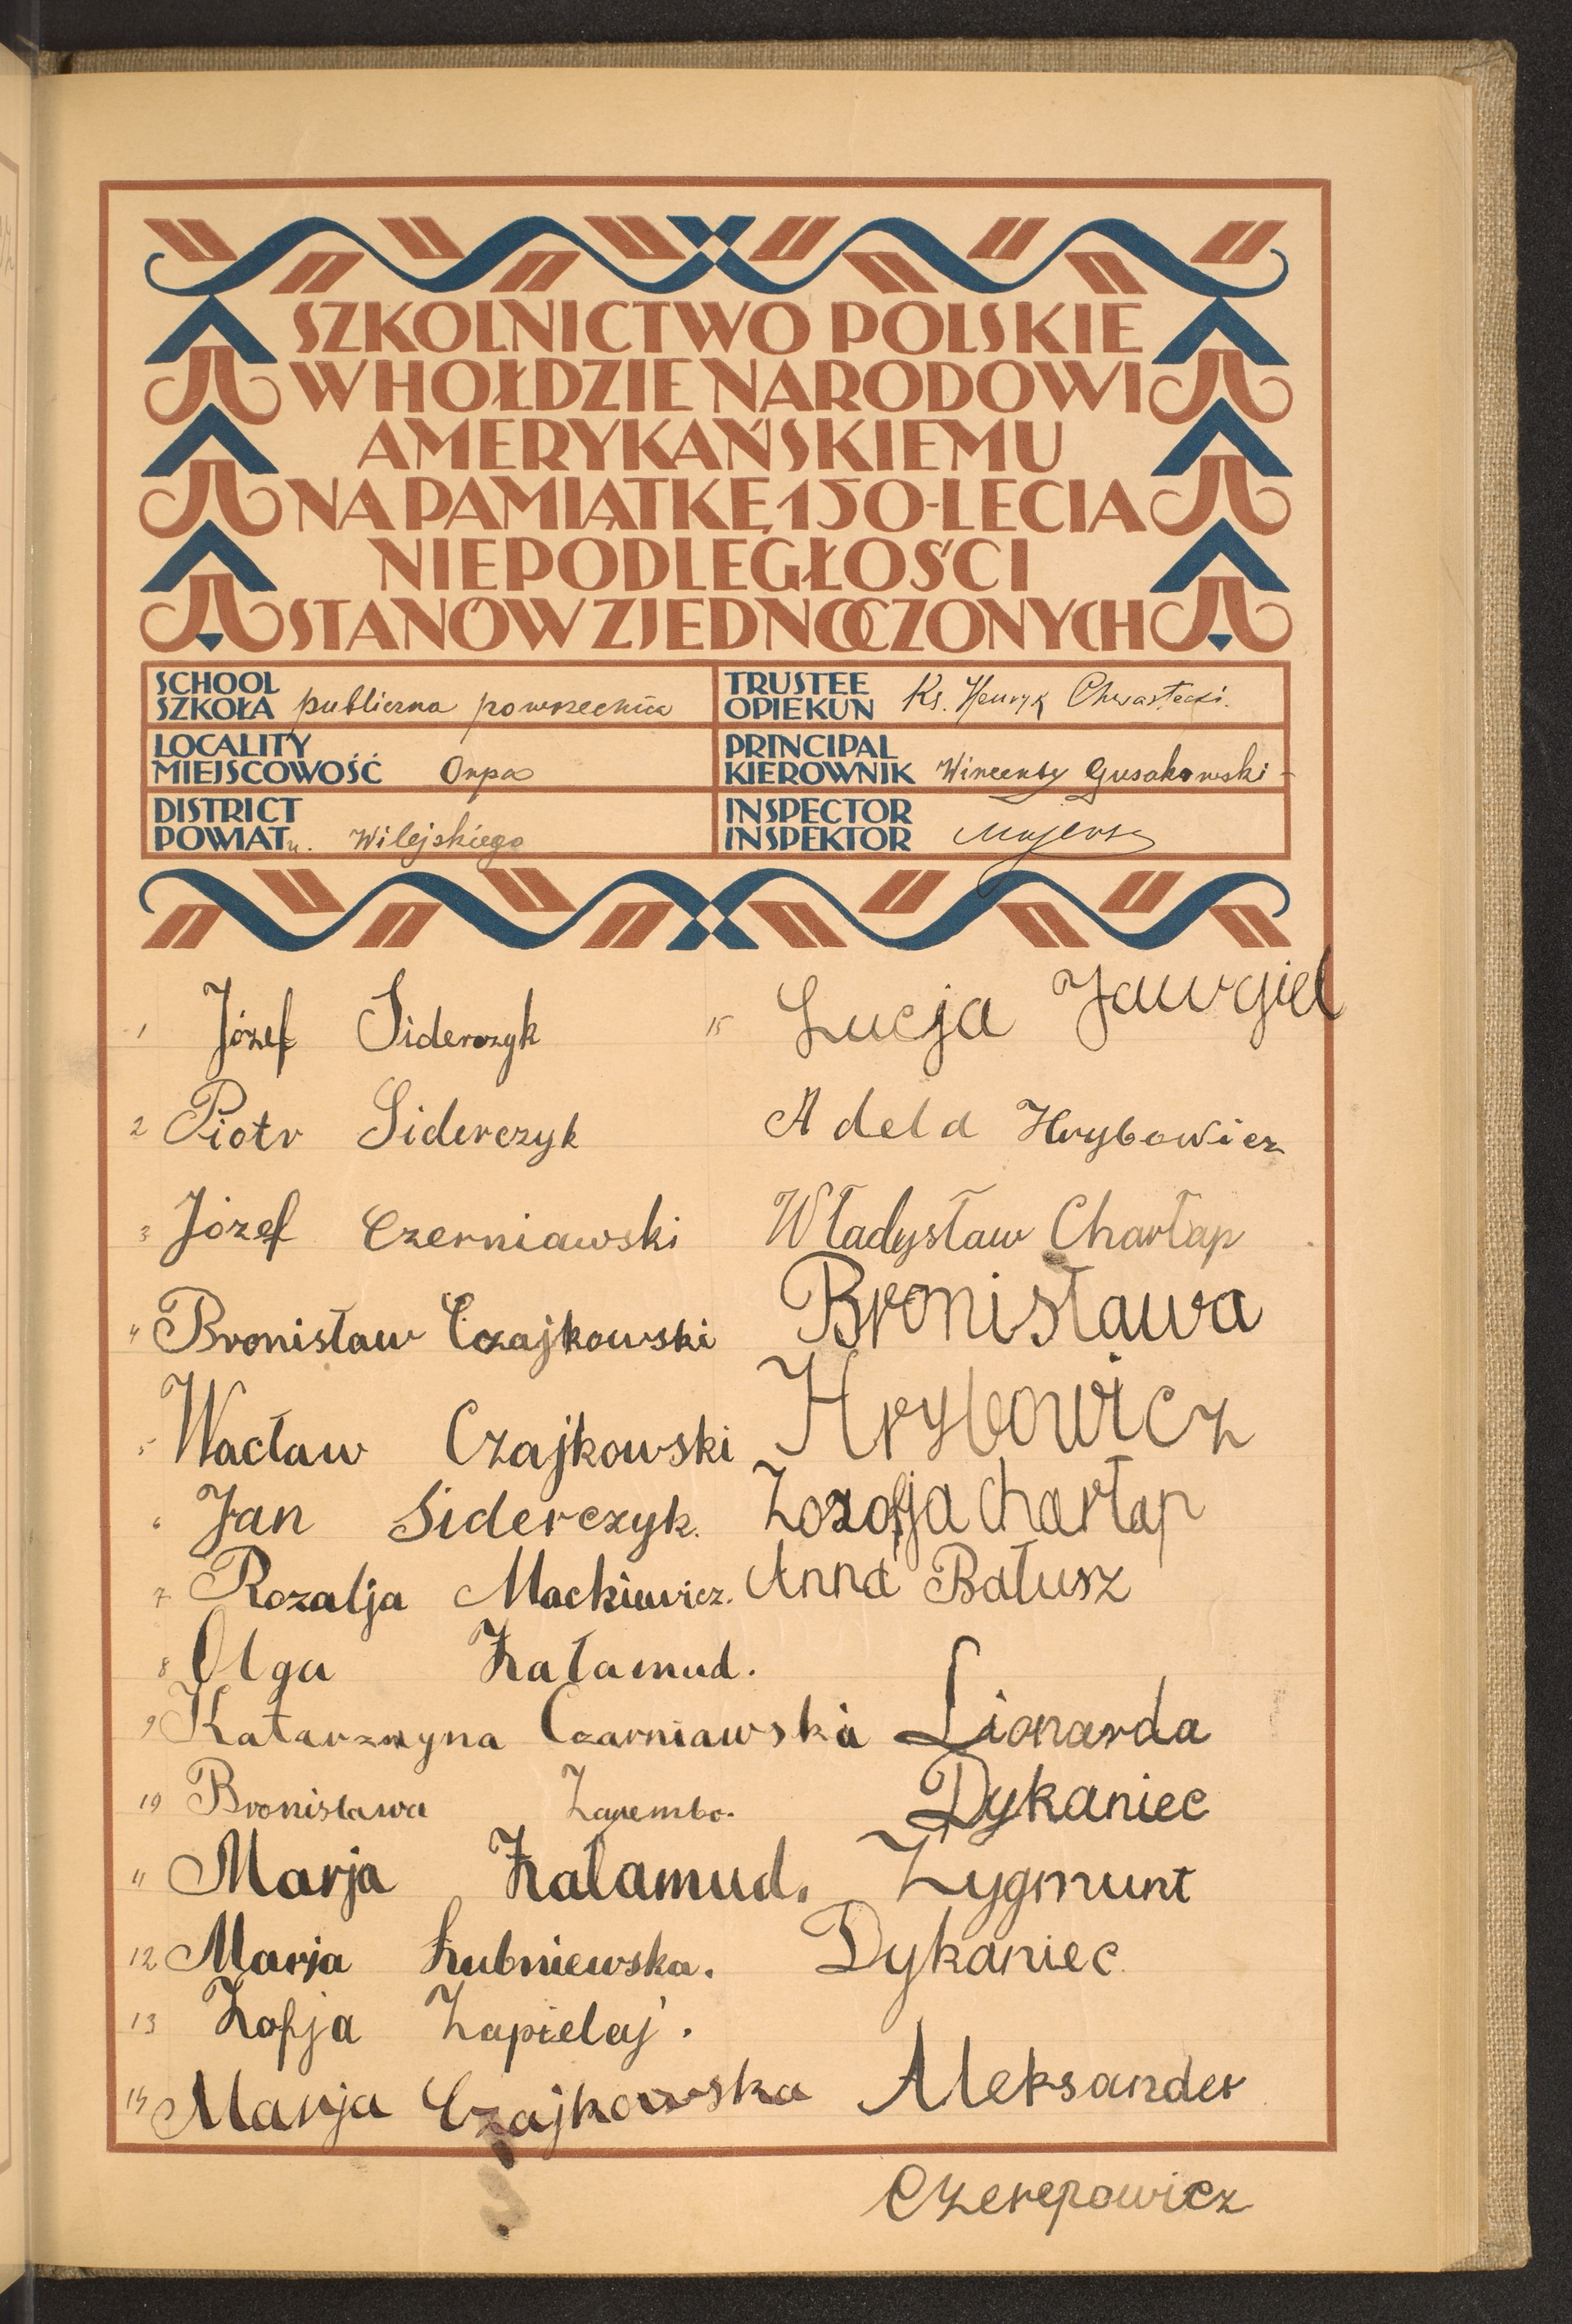 SZKOLNICTWO POLSKIE
W HOŁDZIE NARODOWI
AMERYKAŃSKIEMU
NA PAMIĄTKĘ 150-LECIA
NIEPODLEGŁOŚCI
STANÓW ZJEDNOCZONYCH
SCHOOL
SZKOŁA publiczna powszechna
TRUSTEE
OPIEKUN Ks. Henryk Chwastecki.
LOCALITY
MIEJSCOWOŚĆ Orpa
PRINCIPAL
KIEROWNIK Wincenty Gusakowski
DISTRICT
POWIAT u. Wilejskiego
INSPECTOR
INSPEKTOR
1 Józef Siderczyk
2 Piotr Siderczyk
3 Józef Czerniawski
4 Bronisław Czajkowski
5 Wacław Czajkowski
6 Jan Siderczyk.
7 Rozalja Mackiewicz.
8 Olga Załamud.
9 Katarzyna Czarniawska
10 Bronisława Zaremba.
11 Marja Załamud.
12 Marja Łubniewska.
13 Zofja Zapielaj.
14 Marja Czajkowska
15 Lucja Jawgiel
Adela Hrybowicz
Władysław Chartap
Bronisława
Hrybowicz
Zozofja Chartap
Anna Bałusz
Lionarda
Dykaniec
Zygmunt
Dykaniec
Aleksander
Czerepowicz